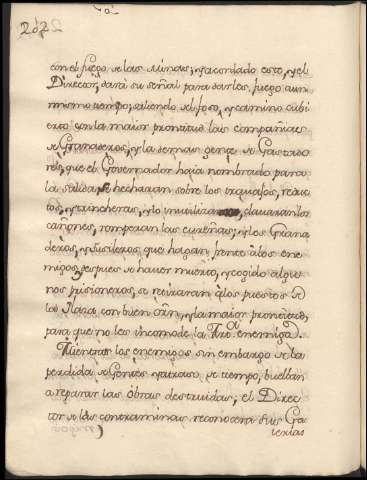 202
con el fuego de las Minas; y acordado esto, y el
Director, dara su señal para darles fuego a un
mismo tiempo; saliendo del foso, y camino cubi
erto con la maior prontitud las compañias
de Granaderos, y la demas gente de Gastado
res, que el Governador haia nombrado para
la salida se hecharan sobre los trabajos, reduc
tos, y trincheras, y lo inutilizaran, clavaran los
cañones, romperan las cureñas; y los Grana
deros, y fusileros que hagan frente a los ene
migos, y despues de haver muerto, y cogido algu
nos prisioneros, se retiraran a los puestos de
la Plaza con buen orn, y la maior prontitud,
para que no les incomode la Art.a enemiga.
Mientras los enemigos sin embargo de la
perdida de Gentes, y atraso de tiempo, buelban
a reparar las obras destruidas; el Direc
tor de las contraminas reconocera sus Ga
lerias